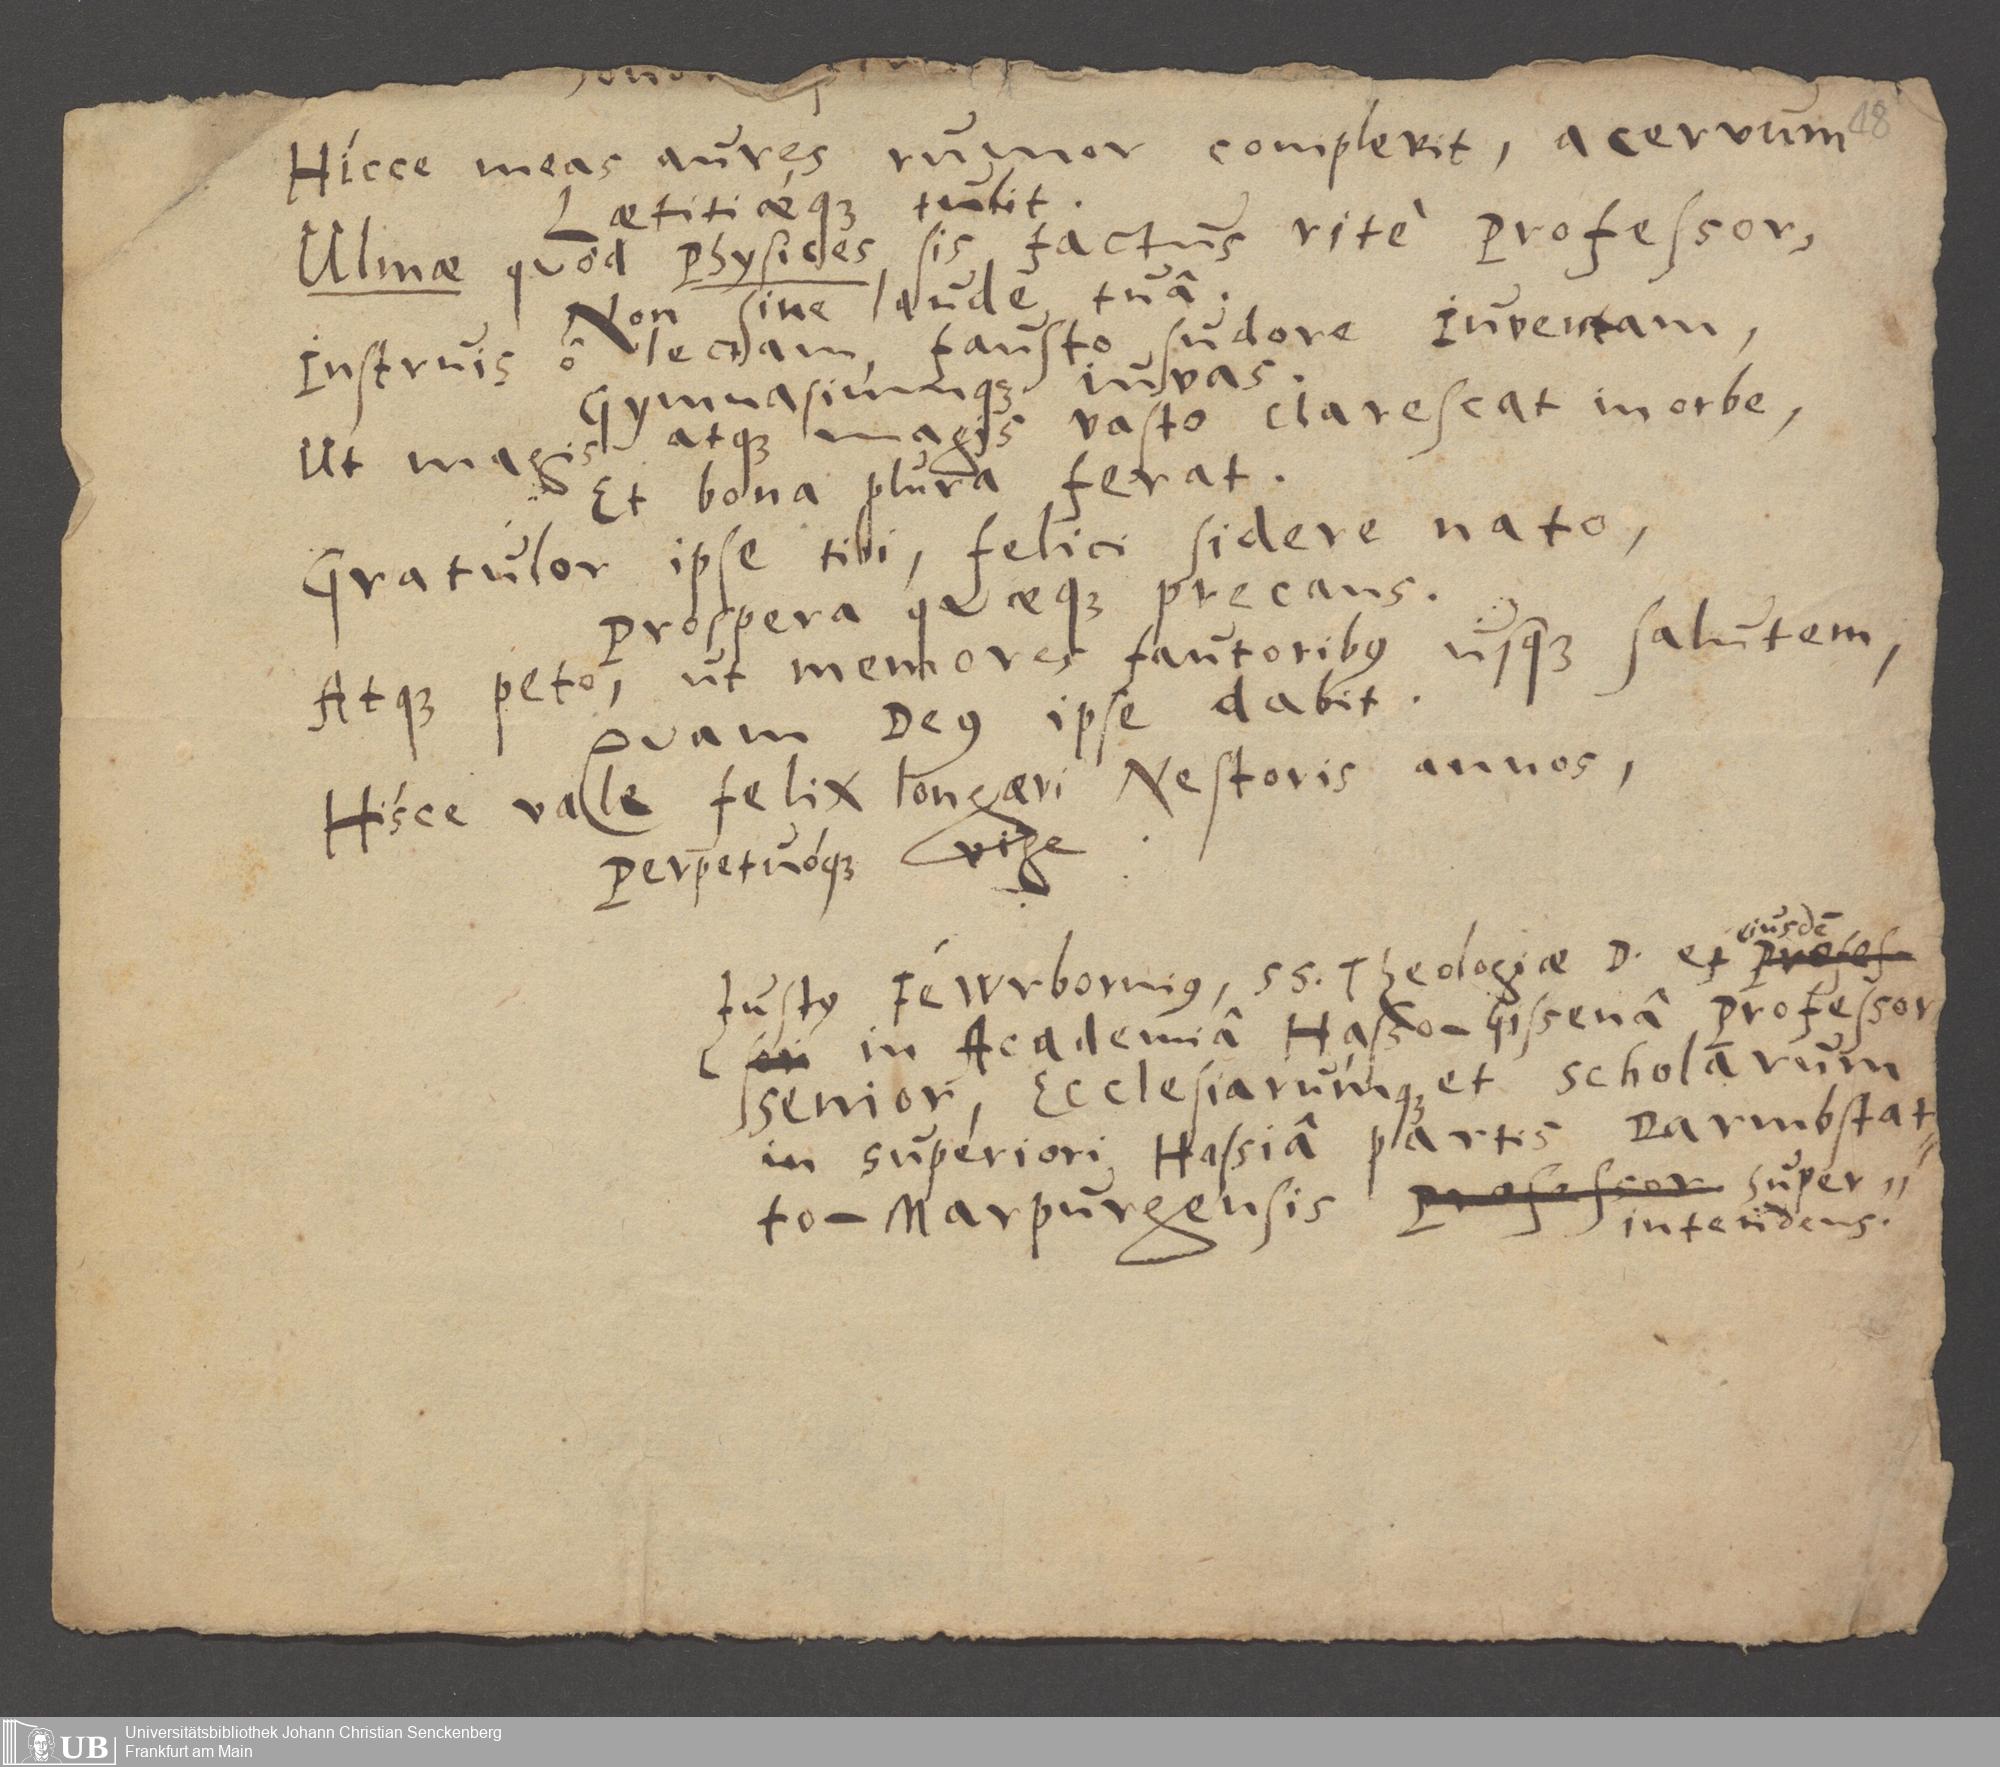 18
Hicce meas aures rumor complevit, acervum
Lætitiæq́ꝫ tulit.
Ulmæ quòd Physices sis factus ritè Professor,
Non sine laude tuâ.
Instruis ô lectam, fausto sudore Iuventam,
Gymnasiumqꝫ iuvas.
Ut magis atqꝫ magis vasto clarescat in orbe,
Et bona plura ferat.
Gratulor ipse tibi, felici sidere nato,
Prospera quæqꝫ precans.
Atqꝫ peto, ut memores fautoribꝰ usqꝫ salutem,
Quam Deꝰ ipse dabit.
Hisce vale felix longævi Nestoris annos,
Perpetuóqꝫ vige.
eiusdē
Justꝰ Féwrborniꝰ, SS. Theologiæ D. et Profes-
sor in Academiâ Hasso-Gissenâ Professor
Senior, Ecclesiarúmqꝫ et Scholarum
in superiori Hassiâ partis Darmbstat-
to-Marpurgensis Professor Super-
intendens.
UB
Universitätsbibliothek Johann Christian Senckenberg
Frankfurt am Main